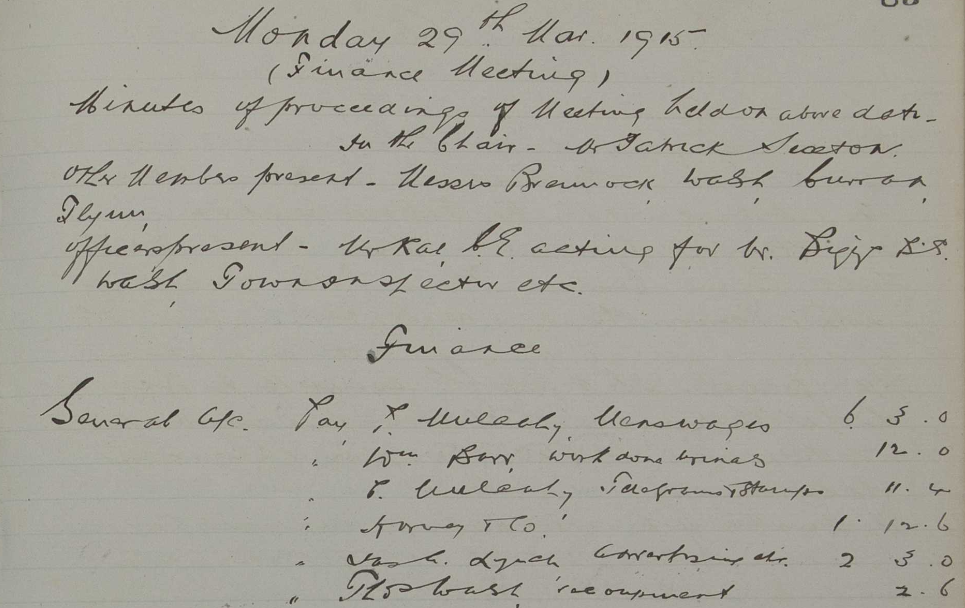 Monday 29th Mar. 1915
(Finance Meeting)
Minutes of proceedings of Meeting held on above date -
In the Chair - Mr Patrick Sexton.
Other Members present - Messrs Brennock, Walsh, Curran,
Flynn,
Officers present - Mr Rae C.E. acting for Mr. Bigg B.S.
Walsh, Town Inspector etc.
Finance
General A/c. Pay P. Mulcahy, Mens wages 6 3 . 0
" Wm Barr, work done urinals 12 . 0
" P. Mulcahy Telegrams & Stamps 11 . 4
" Harvey & Co. 1 . 12 . 6
" Lynch advertising etc. 2 3 . 0
" Thos Walsh recoupment 2 . 6